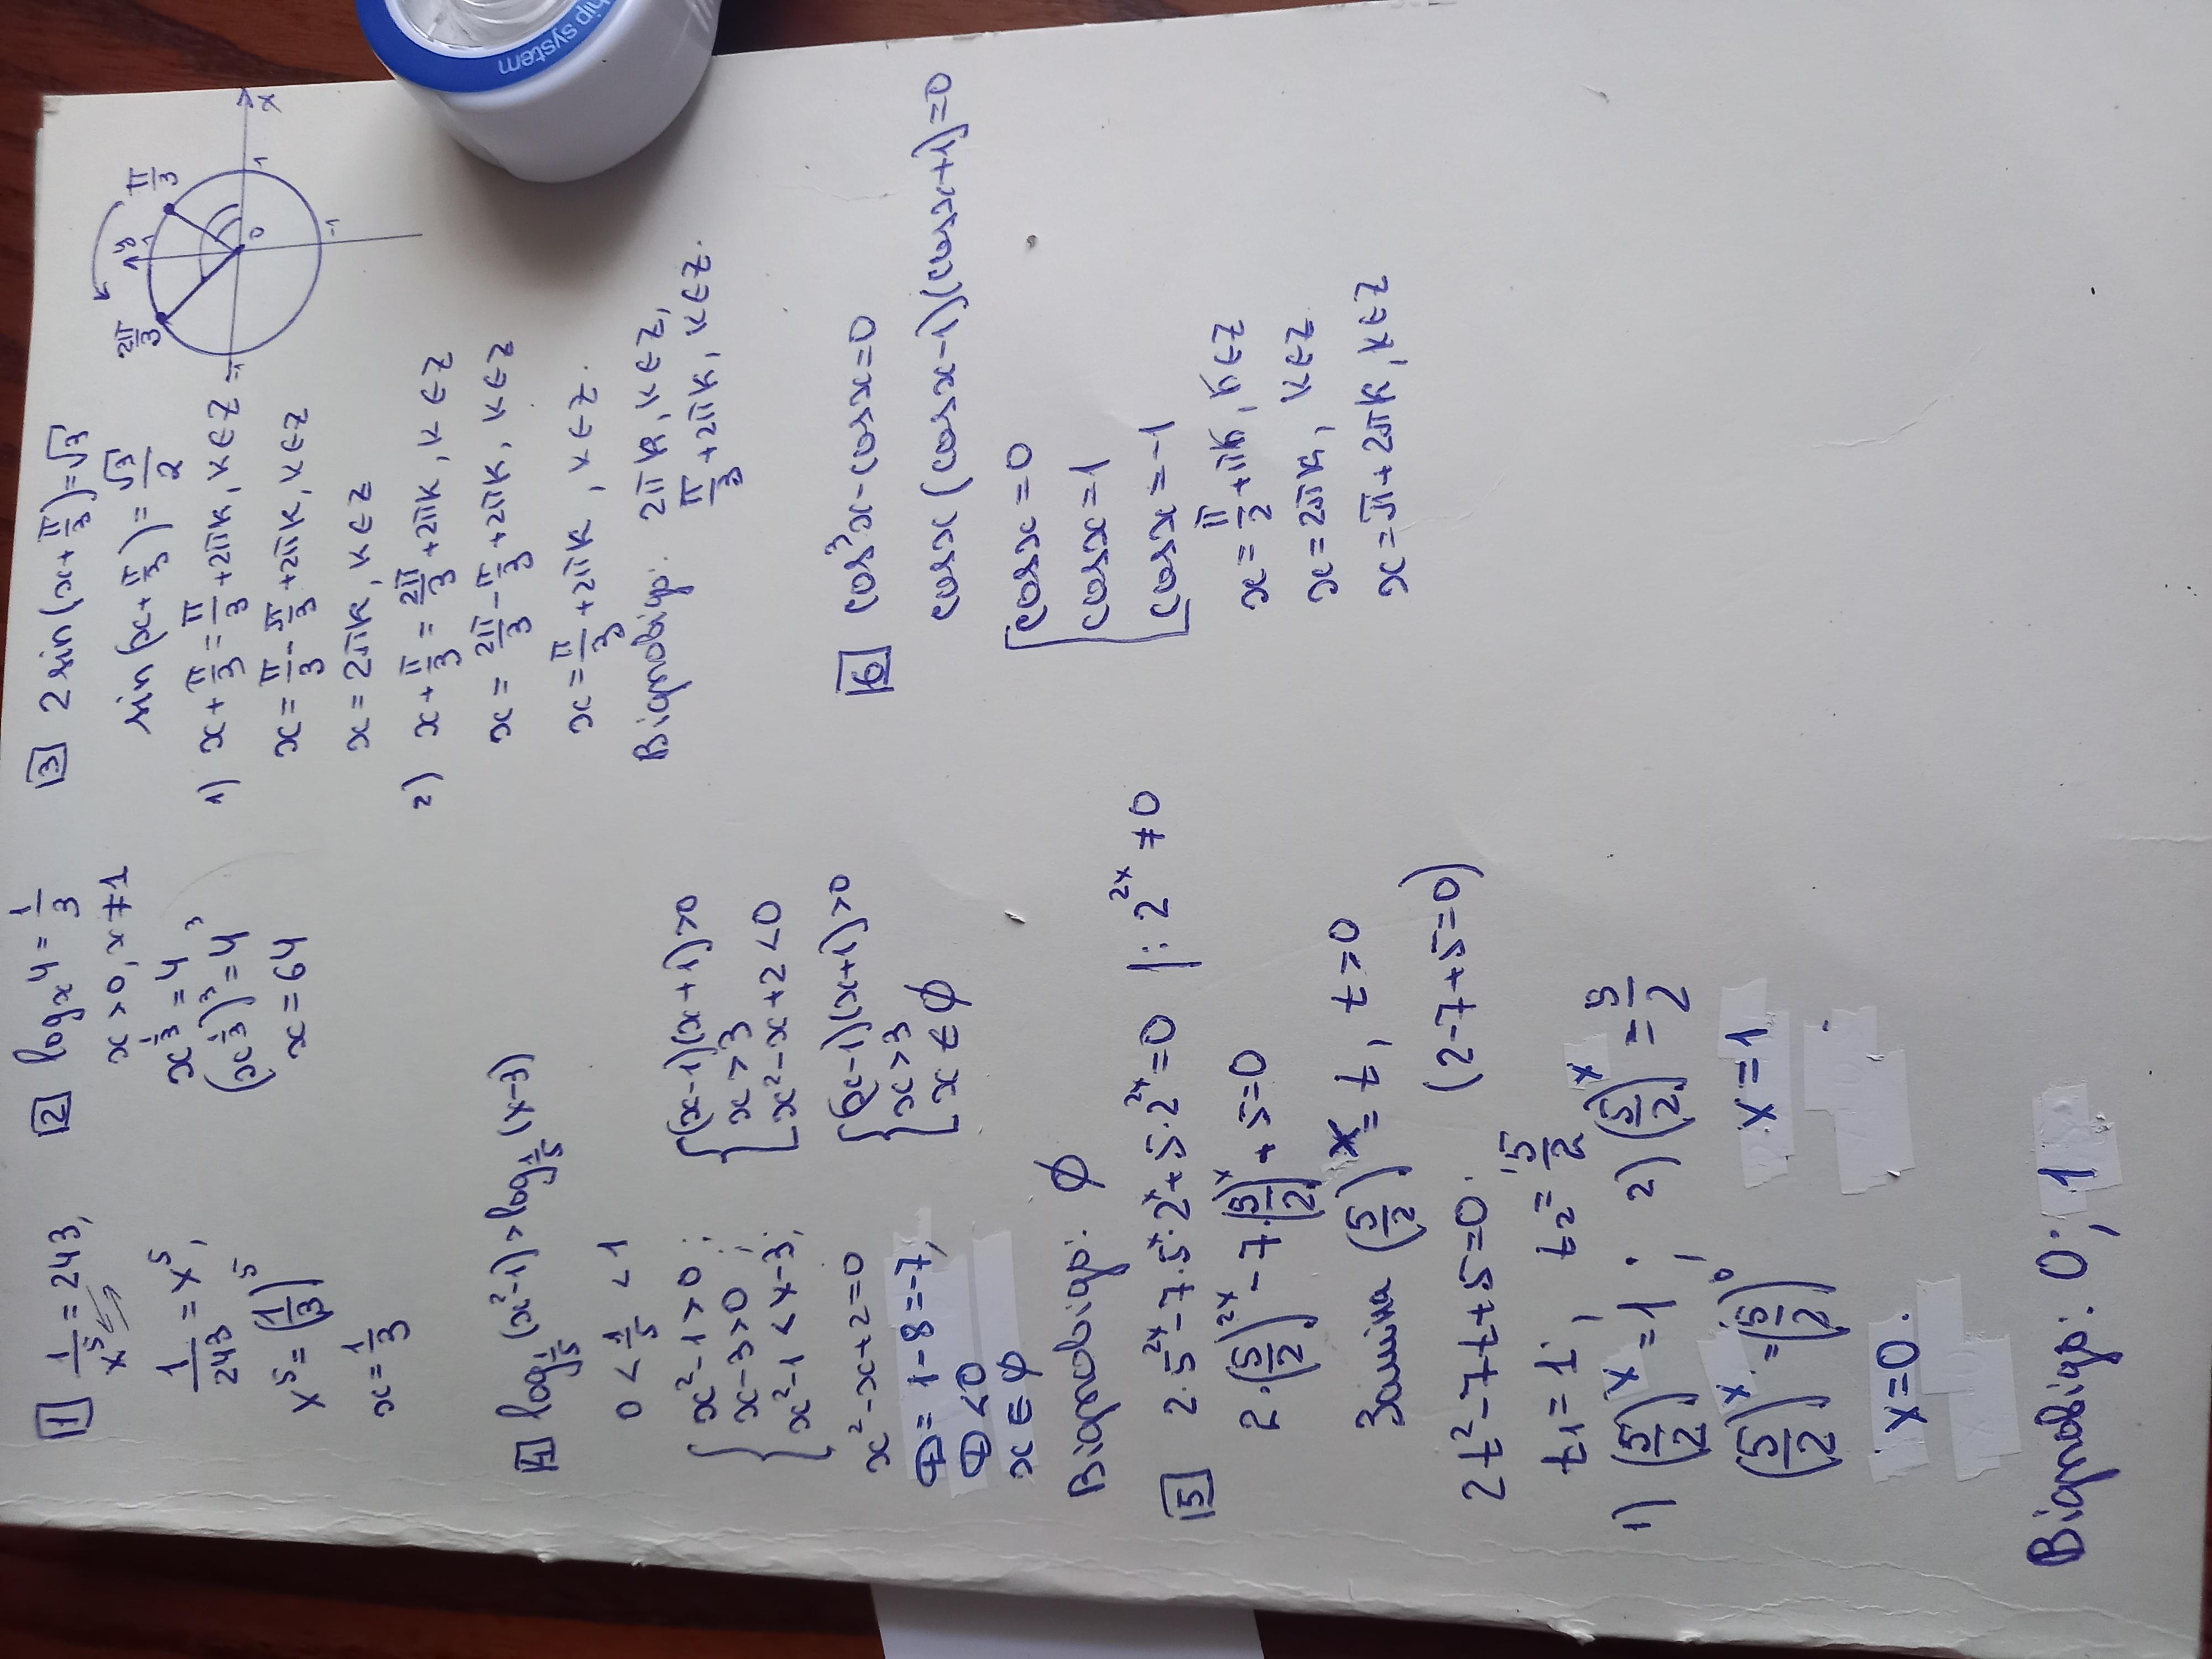 1 1/x⁵ = 243,
1/243 = x⁵,
x⁵ = (1/3)⁵
x = 1/3
2 logₓ4 = 1/3
x > 0, x ≠ 1
x^(1/3) = 4
(x^(1/3))³ = 4³
x = 64
3 2 sin(x + π/3) = √3
sin(x + π/3) = √3/2
1) x + π/3 = π/3 + 2πk, k ∈ Z
x = π/3 - π/3 + 2πk, k ∈ Z
x = 2πk, k ∈ Z
2) x + π/3 = 2π/3 + 2πk, k ∈ Z
x = 2π/3 - π/3 + 2πk, k ∈ Z
x = π/3 + 2πk, k ∈ Z.
Відповідь: 2πk, k ∈ Z,
π/3 + 2πk, k ∈ Z.
2π/3 1 y π/3
-1 0 1 x
-1
4 log_(1/5)(x² - 1) > log_(1/5)(x - 3)
0 < 1/5 < 1
{ x² - 1 > 0;
x - 3 > 0;
x² - 1 < x - 3;
{ (x - 1)(x + 1) > 0
x > 3
x² - x + 2 < 0
x² - x + 2 = 0
D = 1 - 8 = -7,
D < 0
x ∈ ∅
{ (x - 1)(x + 1) > 0
x > 3
x ∈ ∅
Відповідь: ∅
5 2·5^(2x) - 7·5^x·2^x + 5·2^(2x) = 0 |: 2^(2x) ≠ 0
2·(5/2)^(2x) - 7·(5/2)^x + 5 = 0
Заміна (5/2)^x = t, t > 0
2t² - 7t + 5 = 0. (2 - 7 + 5 = 0)
t₁ = 1; t₂ = 5/2
1) (5/2)^x = 1; 2) (5/2)^x = 5/2
(5/2)^x = (5/2)^0
x = 1
x = 0.
Відповідь: 0; 1
6 cos³x - cosx = 0
cosx(cosx - 1)(cosx + 1) = 0
[ cosx = 0
cosx = 1
cosx = -1
x = π/2 + πk, k ∈ Z
x = 2πk, k ∈ Z
x = π + 2πk, k ∈ Z
hip system